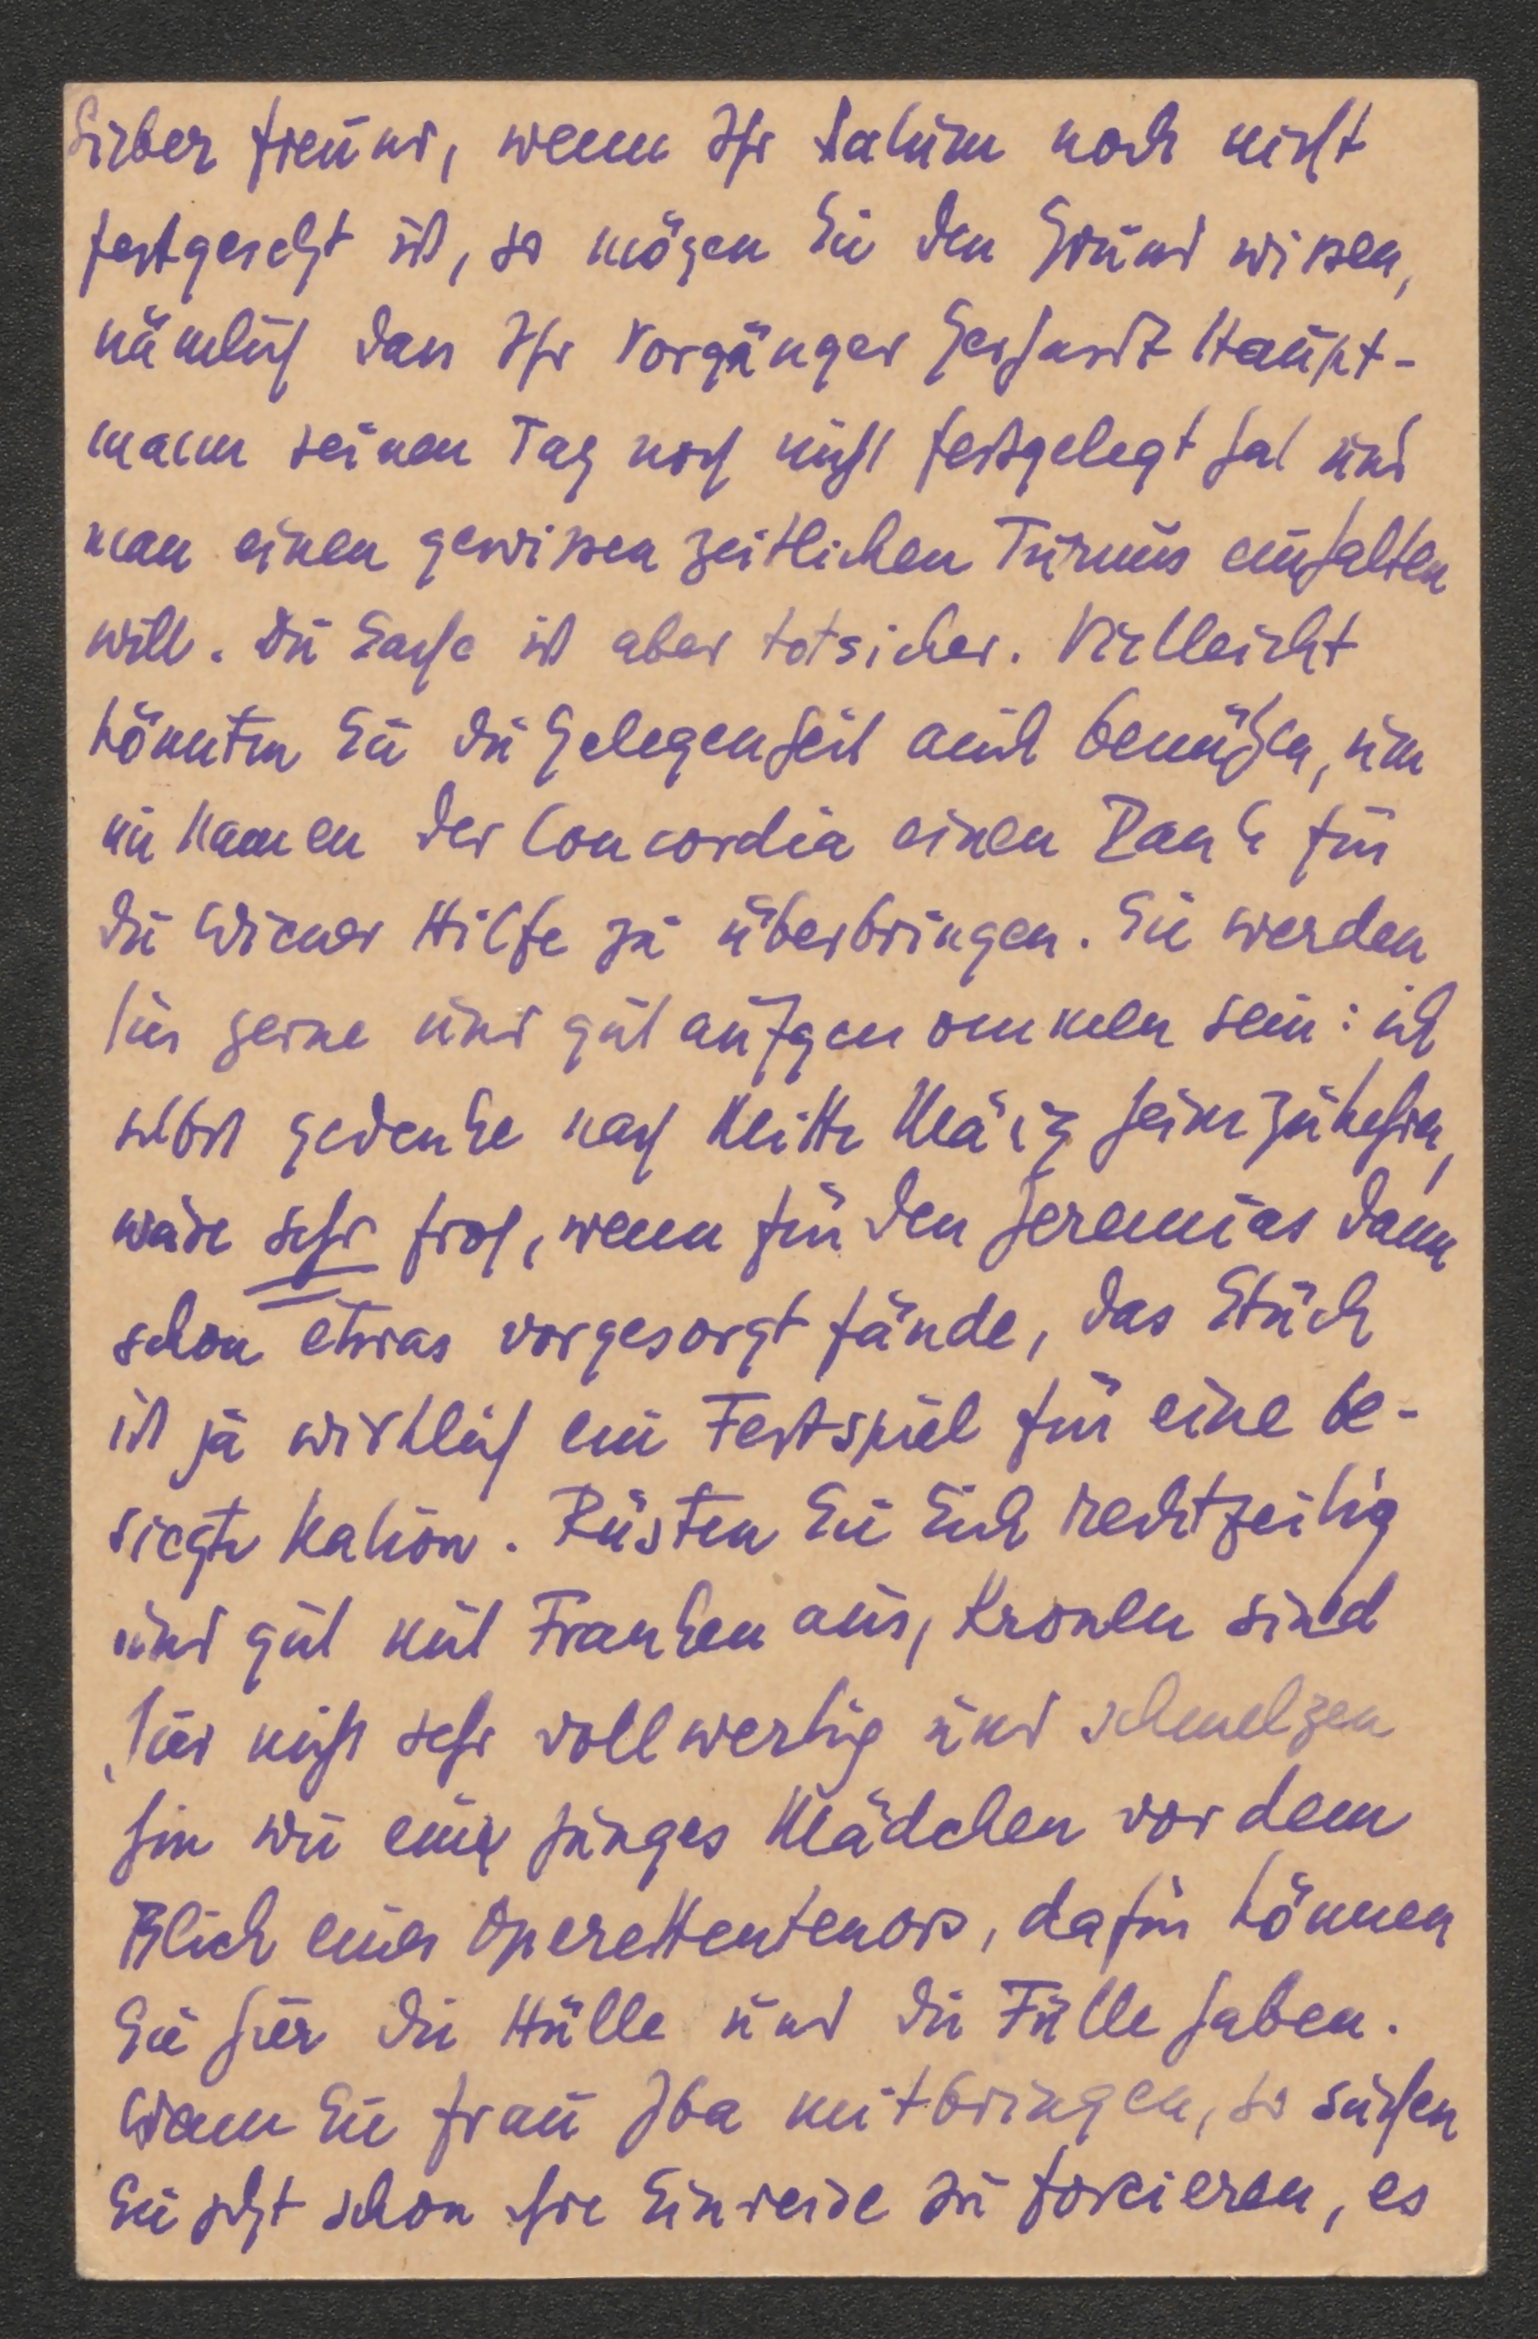 Lieber Freund, wenn Ihr Datum noch nicht
festgesetzt ist, so mögen Sie den Grund wissen,
nämlich dass Ihr Vorgänger Gerhardt Haupt-
mann seinen Tag noch nicht festgelegt hat und
man einen gewissen zeitlichen Turnus einhalten
will. Die Sache ist aber totsicher. Vielleicht
könnten Sie die Gelegenheit auch benützen, um
im Namen der Concordia einen Dank für
die Wiener Hilfe zu überbringen. Sie werden
hier gerne und gut aufgenommen sein: ich
selbst gedenke nach Mitte März heimzukehren,
wäre sehr froh, wenn für den Jeremias dann
schon etwas vorgesorgt fände, das Stück
ist ja wirklich ein Festspiel für eine be-
siegte Nation. Rüsten Sie Sich rechtzeitig
und gut mit Franken aus, Kronen sind
hier nicht sehr vollwertig und schmelzen
hin wie ein junges Mädchen vor dem
Blick eines Operettentenors, dafür können
Sie hier die Hülle und die Fülle haben.
Wenn Sie Frau Ida mitbringen, so suchen
Sie jetzt schon ihre Einreise zu forcieren, es